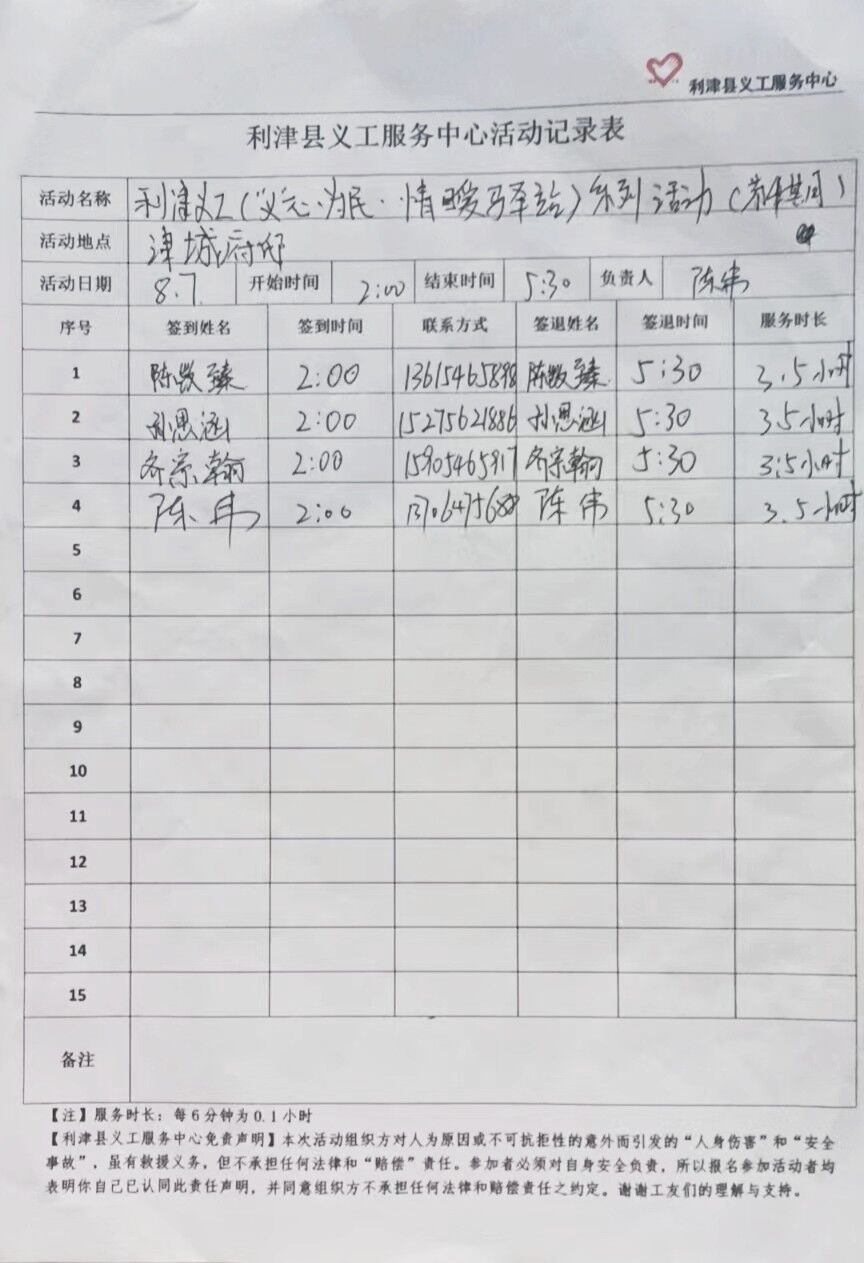 利津县义工服务中心
利津县义工服务中心活动记录表
活动名称 利津义工(“义”元·为民·情暖驿站)系列活动(
活动地点 津城府邸
活动日期 8.7. 开始时间 2:00 结束时间 5:30 负责人 陈伟
序号 签到姓名 签到时间 联系方式 签退姓名 签退时间 服务时长
1 陈数臻 2:00 13615465898 陈数臻 5:30 3.5小时
2 孙思涵 2:00 15275621886 孙思涵 5:30 3.5小时
3 齐宗翰 2:00 15905465917 齐宗翰 5:30 3.5小时
4 陈伟 2:00 陈伟 5:30 3.5小时
5
6
7
8
9
10
11
12
13
14
15
备注
【注】服务时长：每6分钟为0.1小时
【利津县义工服务中心免责声明】本次活动组织方对人为原因或不可抗拒性的意外而引发的“人身伤害”和“安全
事故”，虽有救援义务，但不承担任何法律和“赔偿”责任。参加者必须对自身安全负责，所以报名参加活动者均
表明你自己已认同此责任声明，并同意组织方不承担任何法律和赔偿责任之约定。谢谢工友们的理解与支持。